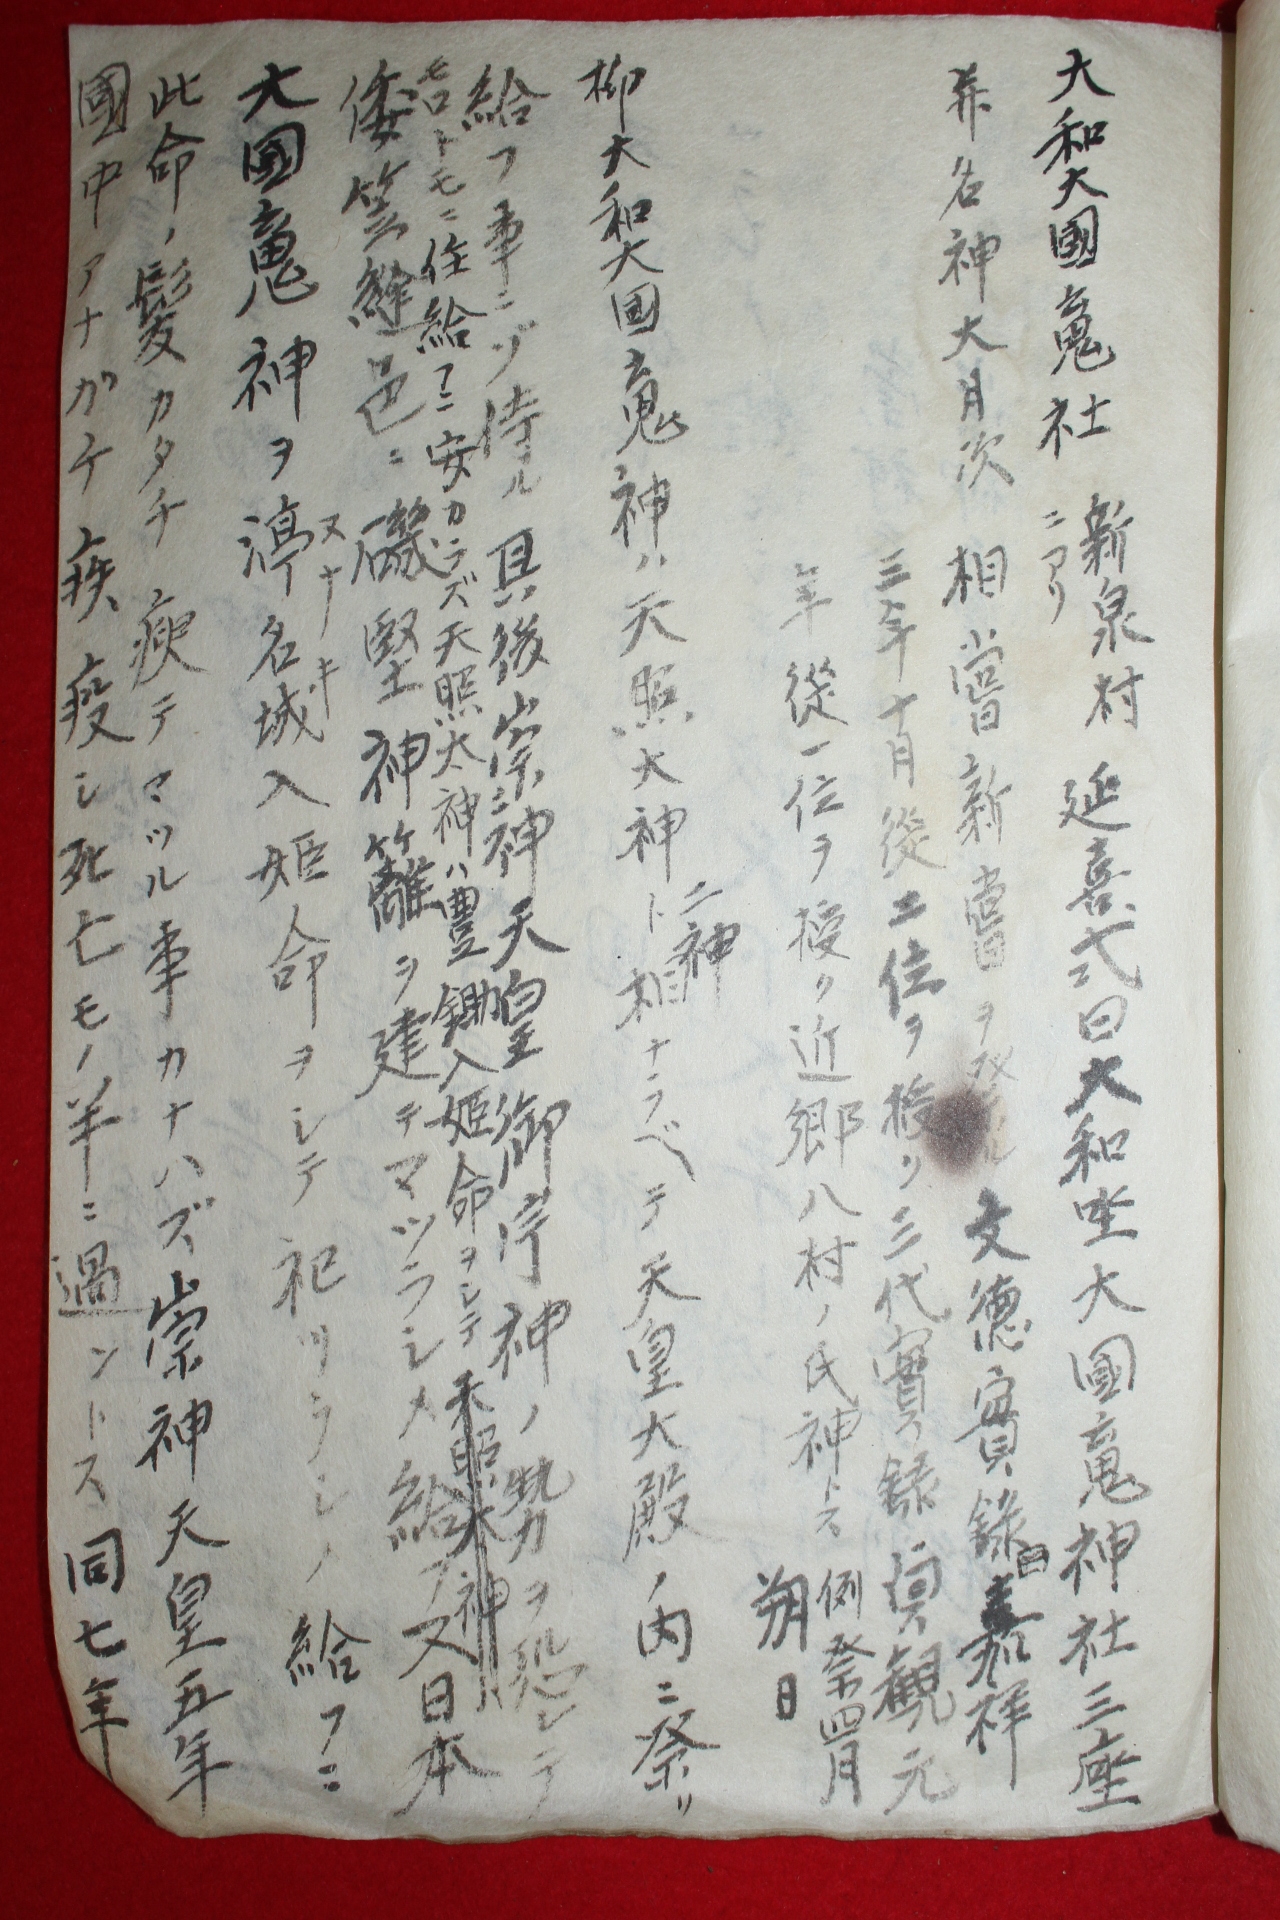 大和大國䰟社 新泉村ニアリ 延喜式曰大和坐大國䰟神社三座
並名神大月次 相嘗新嘗ヲ祭ル 文德實錄曰嘉祥
三年十月從二位ヲ授リ三代實錄ニ貞觀元
年從一位ヲ授リ近郷八村ノ氏神トス 例祭四月
朔日
抑大和大国䰟神ハ天照大神ト二神相ナラベテ天皇大殿ノ内ニ祭リ
給フ事ニゾ侍ル 其後崇神天皇御宇神ノ勢ヲ恐レテ
モロトモニ住給フニ安カラズ天照太神ハ豊鋤入姫命ヲシテ天照大神
倭笠縫邑ニ磯堅神籬ヲ建テマツラシメ給フ又日本
大國䰟神ヲ渟名城入姫命ヲシテ祀ツラシノ給フニ
ヌナキ
此命ノ髪カタチ痩テマツル事カナハズ崇神天皇五年
國中アナガケ疾疫シ死亡モノ半ニ過ントス同七年